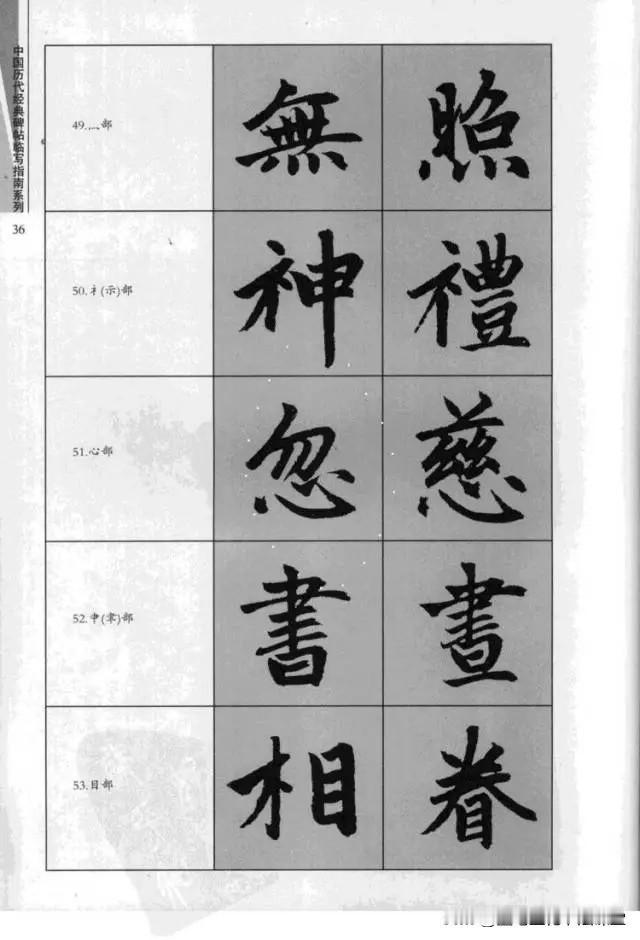 中国历代经典碑帖临写指南系列
36
49.灬部
無 照
50.礻(示)部
神 禮
51.心部
忽 慈
52.肀(聿)部
書 晝
53.目部
相 眷